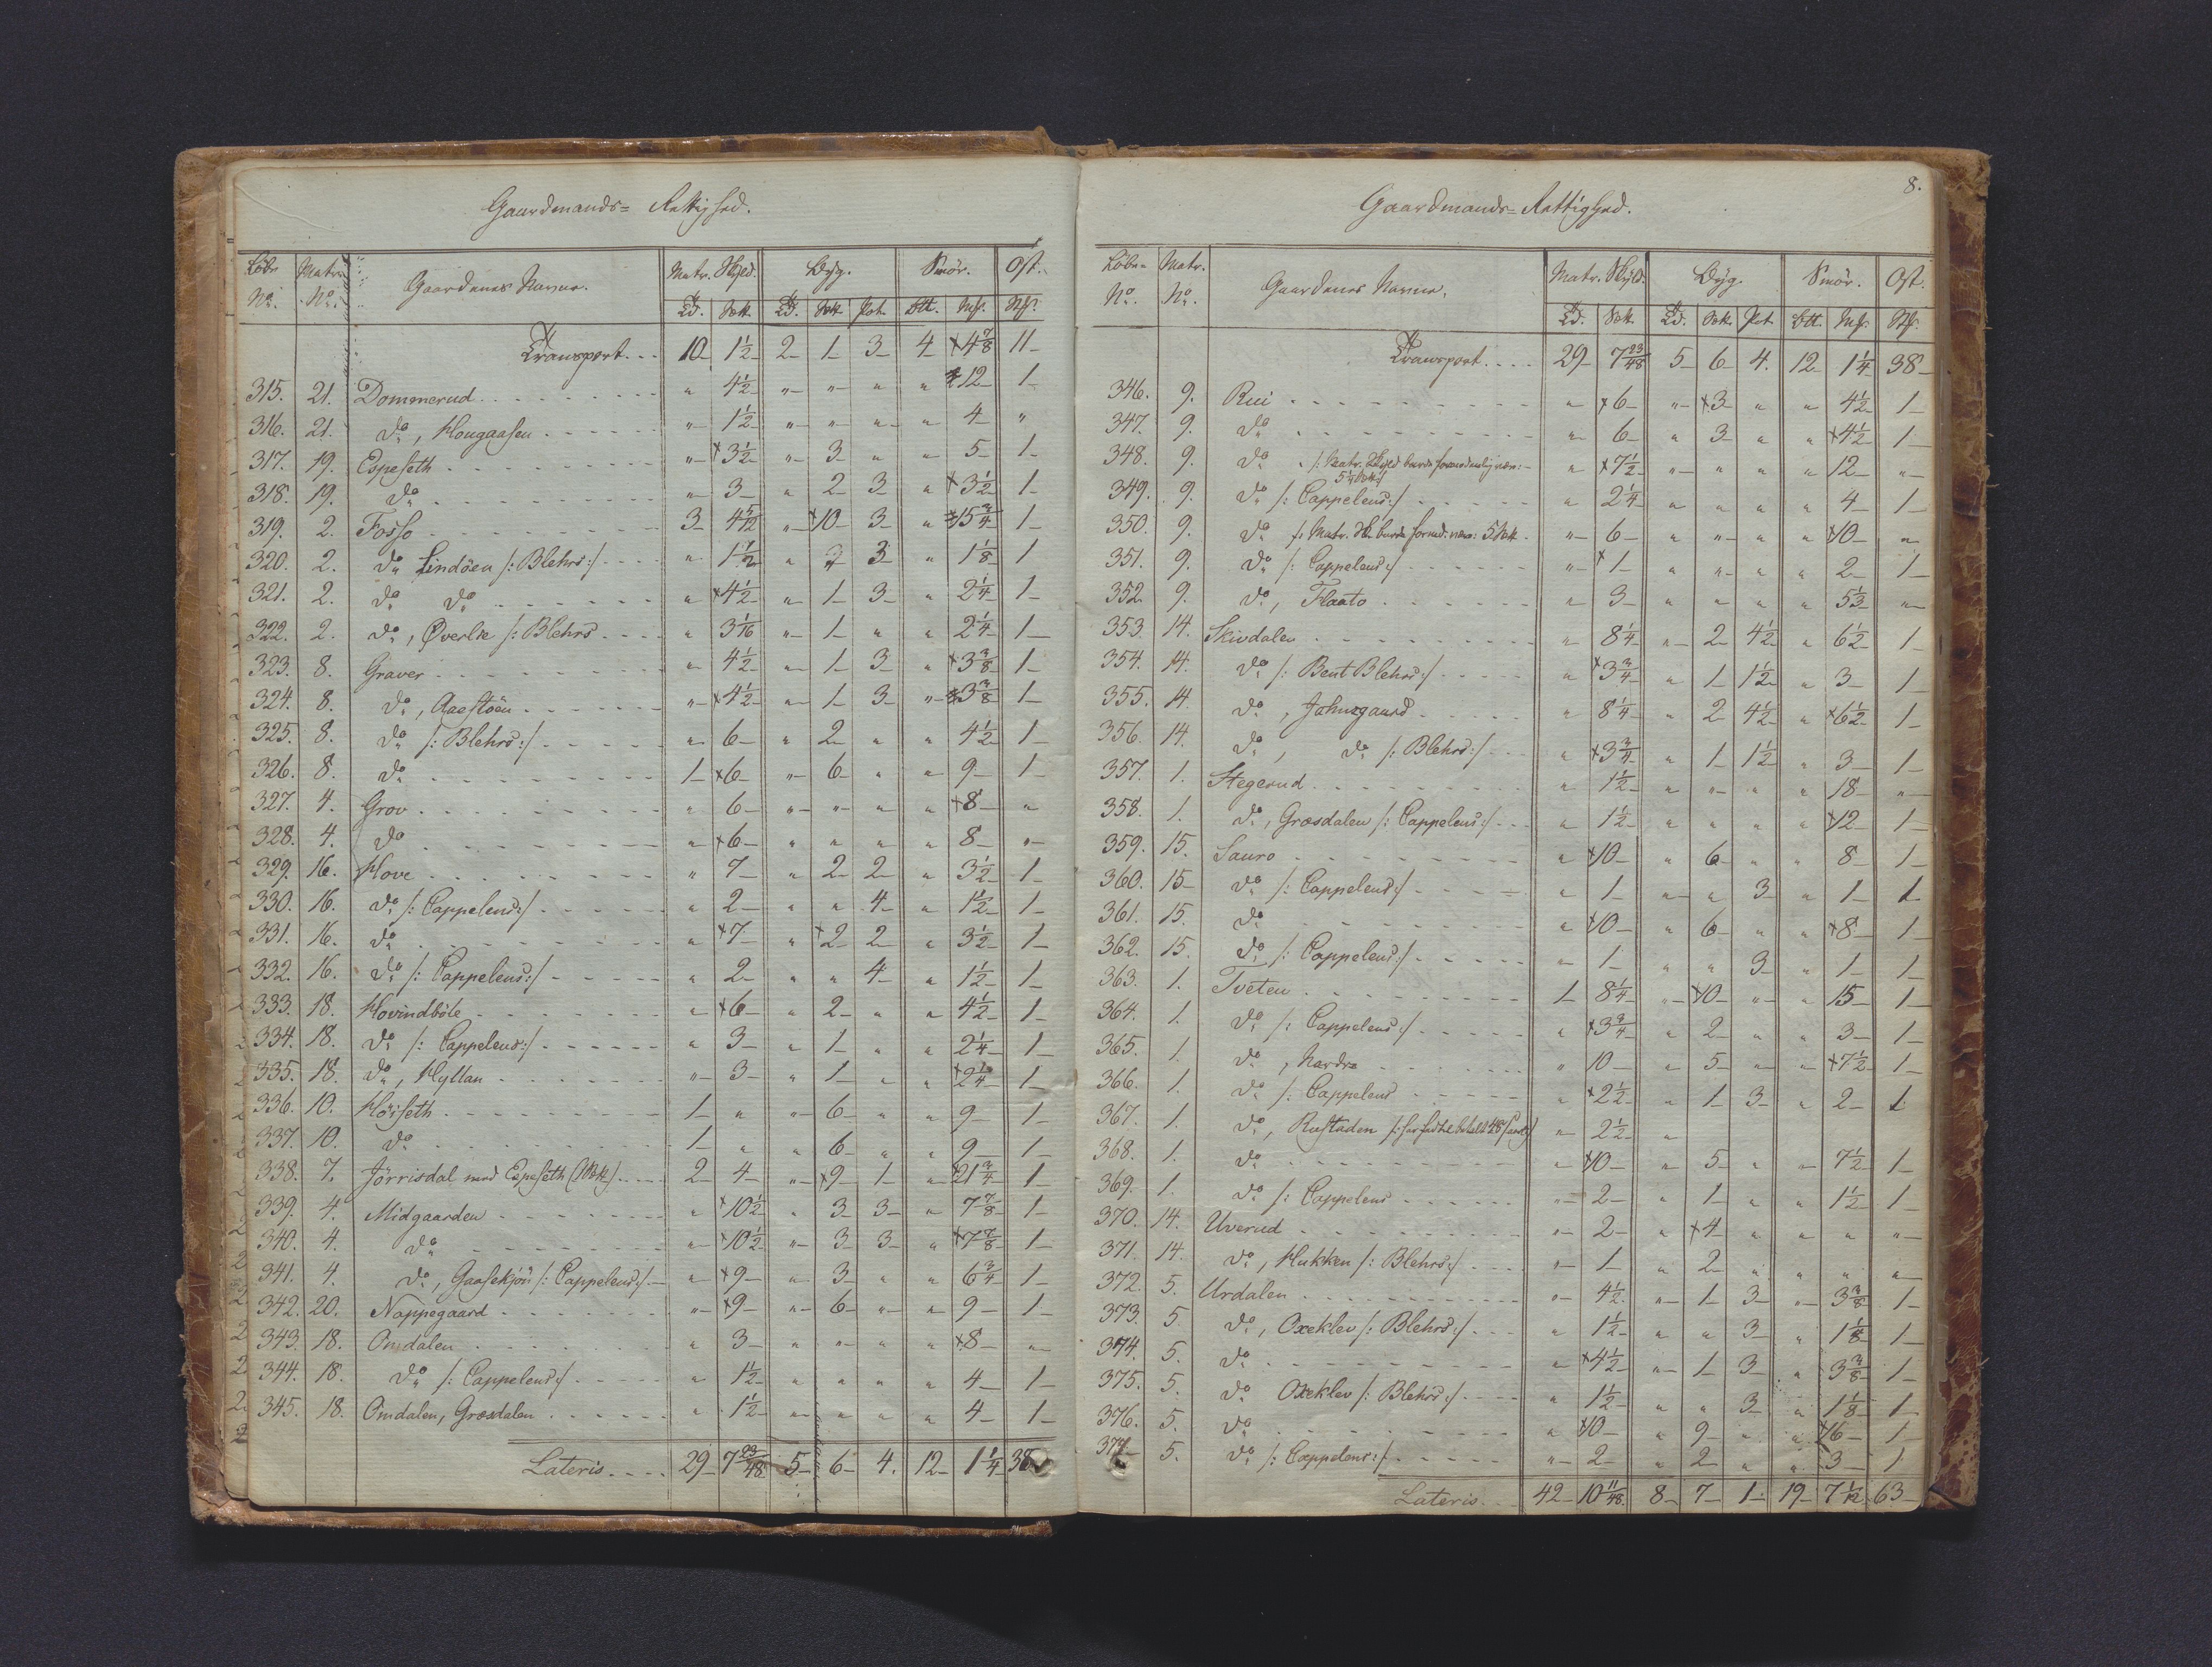 Gaardmands= Rettighed.
Løbe No. Matr. No. Gaardenes Navne. Matr. Skyld. Byg. Smør. Ost.
Td. Sett. Td. Sett. Pot. Stk.
Transport. . . 10 1 1/2 2 1 3 4 ×4 7/8 11
315. 21. Dommerud . . . " 4 1/2 " " " " ×12 1
316. 21. do, Hougaasen . . . " 1 1/2 " " " " 4 "
317. 19. Espeseth . . . " ×3 1/2 " 3 " " 5 1
318. 19. do . . . " 3 " 2 3 " ×3 1/2 1
319. 2. Fosso . . . 3 4 5/12 " ×10 3 " ×15 3/4 1
320. 2. do Lindöen /: Blehrs :/ . . . " 1 1/2 " 3 " 1 1/8 1
321. 2. do do . . . " ×4 1/2 " 1 3 " 2 1/4 1
322. 2. do, Øverlie /: Blehrs . . . " 3 1/16 " 1 " " 2 1/4 1
323. 8. Graver . . . " 4 1/2 " 1 3 " ×3 3/8 1
324. 8. do, Aaestöen . . . " ×4 1/2 " 1 3 " ×3 3/8 1
325. 8. do /: Blehrs :/ . . . " 6 " 2 " " 4 1/2 1
326. 8. do . . . 1 ×6 " 6 " " 9 1
327. 4. Grov . . . " 6 " " " " ×8 "
328. 4. do . . . " ×6 " " " " 8 "
329. 16. Hove . . . " 7 " 2 2 " 3 1/2 1
330. 16. do /: Cappelens :/ . . . " 2 " " 4 " 1 1/2 1
331. 16. do . . . " ×7 " ×2 2 " 3 1/2 1
332. 16. do /: Cappelens :/ . . . " 2 " " 4 " 1 1/2 1
333. 18. Hovindböle . . . " ×6 " 2 " " 4 1/2 1
334. 18. do /: Cappelens :/ . . . " 3 " 1 " " 2 1/4 1
335. 18. do, Hyllan . . . " 3 " 1 " " ×2 1/4 1
336. 10. Höiseth . . . 1 " " 6 " " 9 1
337. 10. do . . . 1 " " 6 " " 9 1
338. 7. Jörrisdal med Espeseth . . . 2 4 " ×9 1 " ×21 3/4 1
339. 4. Midgaarden . . . " ×10 1/2 " 3 3 " 7 7/8 1
340. 4. do . . . " ×10 1/2 " 3 3 " ×7 7/8 1
341. 4. do, Gaasekjön /: Cappelens :/ " ×9 " 3 " " 6 3/4 1
342. 20. Nappegaard . . . " ×9 " 6 " " 9 1
343. 18. Omdalen . . . " 3 " " " " ×8 "
344. 18. do /: Cappelens :/ . . . " 1 1/2 " " " " 4 1
345. 18. Omdalen, Græsdalen . . . " 1 1/2 " " " " 4 1
Lateris. . . . 29 7 23/48 5 6 4. 12 1 1/4 38
8.
Gaardmands= Rettighed.
Løbe No. Matr. No. Gaardenes Navne. Matr. Skyld. Byg. Smør. Ost.
Td. Sett. Td. Sett. Pot Stk.
Transport. . . . 29 7 23/48 5 6 4. 12 1 1/4 38
346. 9. Rui . . . " ×6 " ×3 " " 4 1/2 1
347. 9. do . . . " 6 " 3 " " ×4 1/2 1
348. 9. do /: Matr. Skyld burde formodentlig være: " ×7 1/2 " " " " 12 "
349. 9. do /: Cappelens :/ . . . " 2 1/4 " " " " 4 1
350. 9. do /: Matr. Sk. burde formod: være: 5 Sett. " 6 " " " " ×10 "
351. 9. do /: Cappelens :/ . . . " ×1 " " " " 2 1
352. 9. do, Flaato . . . " 3 " " " " 5 1/3 "
353. 14. Skivdalen . . . " 8 1/4 " 2 4 1/2 " 6 1/2 1
354. 14. do /: Bent Blehrs :/ . . . " ×3 3/4 " 1 1 1/2 " 3 1
355. 14. do, Johnsgaard . . . " 8 1/4 " 2 4 1/2 " ×6 1/2 1
356. 14. do, do /: Blehrs :/ . . . " ×3 3/4 " 1 1 1/2 " 3 1
357. 1. Stegerud . . . " 1 1/2 " " " " 18 "
358. 1. do, Græsdalen /: Cappelens :/ . . . " 1 1/2 " " " " ×12 1
359. 15. Sauro . . . " ×10 " 6 " " 8 1
360. 15 do /: Cappelens :/ . . . " 1 " " 3 " 1 1
361. 15. do . . . " ×10 " 6 " " ×8 1
362. 15. do /: Cappelens :/ . . . " 1 " " 3 " 1 1
363. 1. Tveten . . . 1 8 1/4 " ×10 " " 15 1
364. 1. do /: Cappelens :/ . . . " ×3 3/4 " 2 " " 3 1
365. 1. do, Nardre . . . " 10 " 5 " " ×7 1/2 1
366. 1. do /: Cappelens . . . " ×2 1/2 " 1 3 " 2 1
367. 1. do, Rustaden /: har hidtil betalt " 2 1/2 "
368. 1. do . . . " ×10 " 5 " " 7 1/2 1
369. 1. do /: Cappelens . . . " 2 " 1 " " 1 1/2 1
370. 14. Uverud . . . " 2 " ×4 " " " "
371. 14. do, Hukken /: Blehrs :/ . . . " 1 " 2 " " " "
372. 5. Urdalen . . . " 4 1/2 " 1 3 " 3 3/8 1
373. 5. do, Oxeklev /: Blehrs :/ . . . " 1 1/2 " " 3 " 1 1/8 1
374. 5. do . . . " ×4 1/2 " 1 3 " 3 3/8 1
375. 5. do Oxeklev /: Blehrs :/ . . . " 1 1/2 " " 3 " 1 1/8 1
376. 5. do . . . " ×10 " 9 " " ×16 1
377. 5. do /: Cappelens :/ . . . " 2 " 2 " " 3 1
Lateris . . . 42 10 11/48 8 7 1 19 7 1/12 63